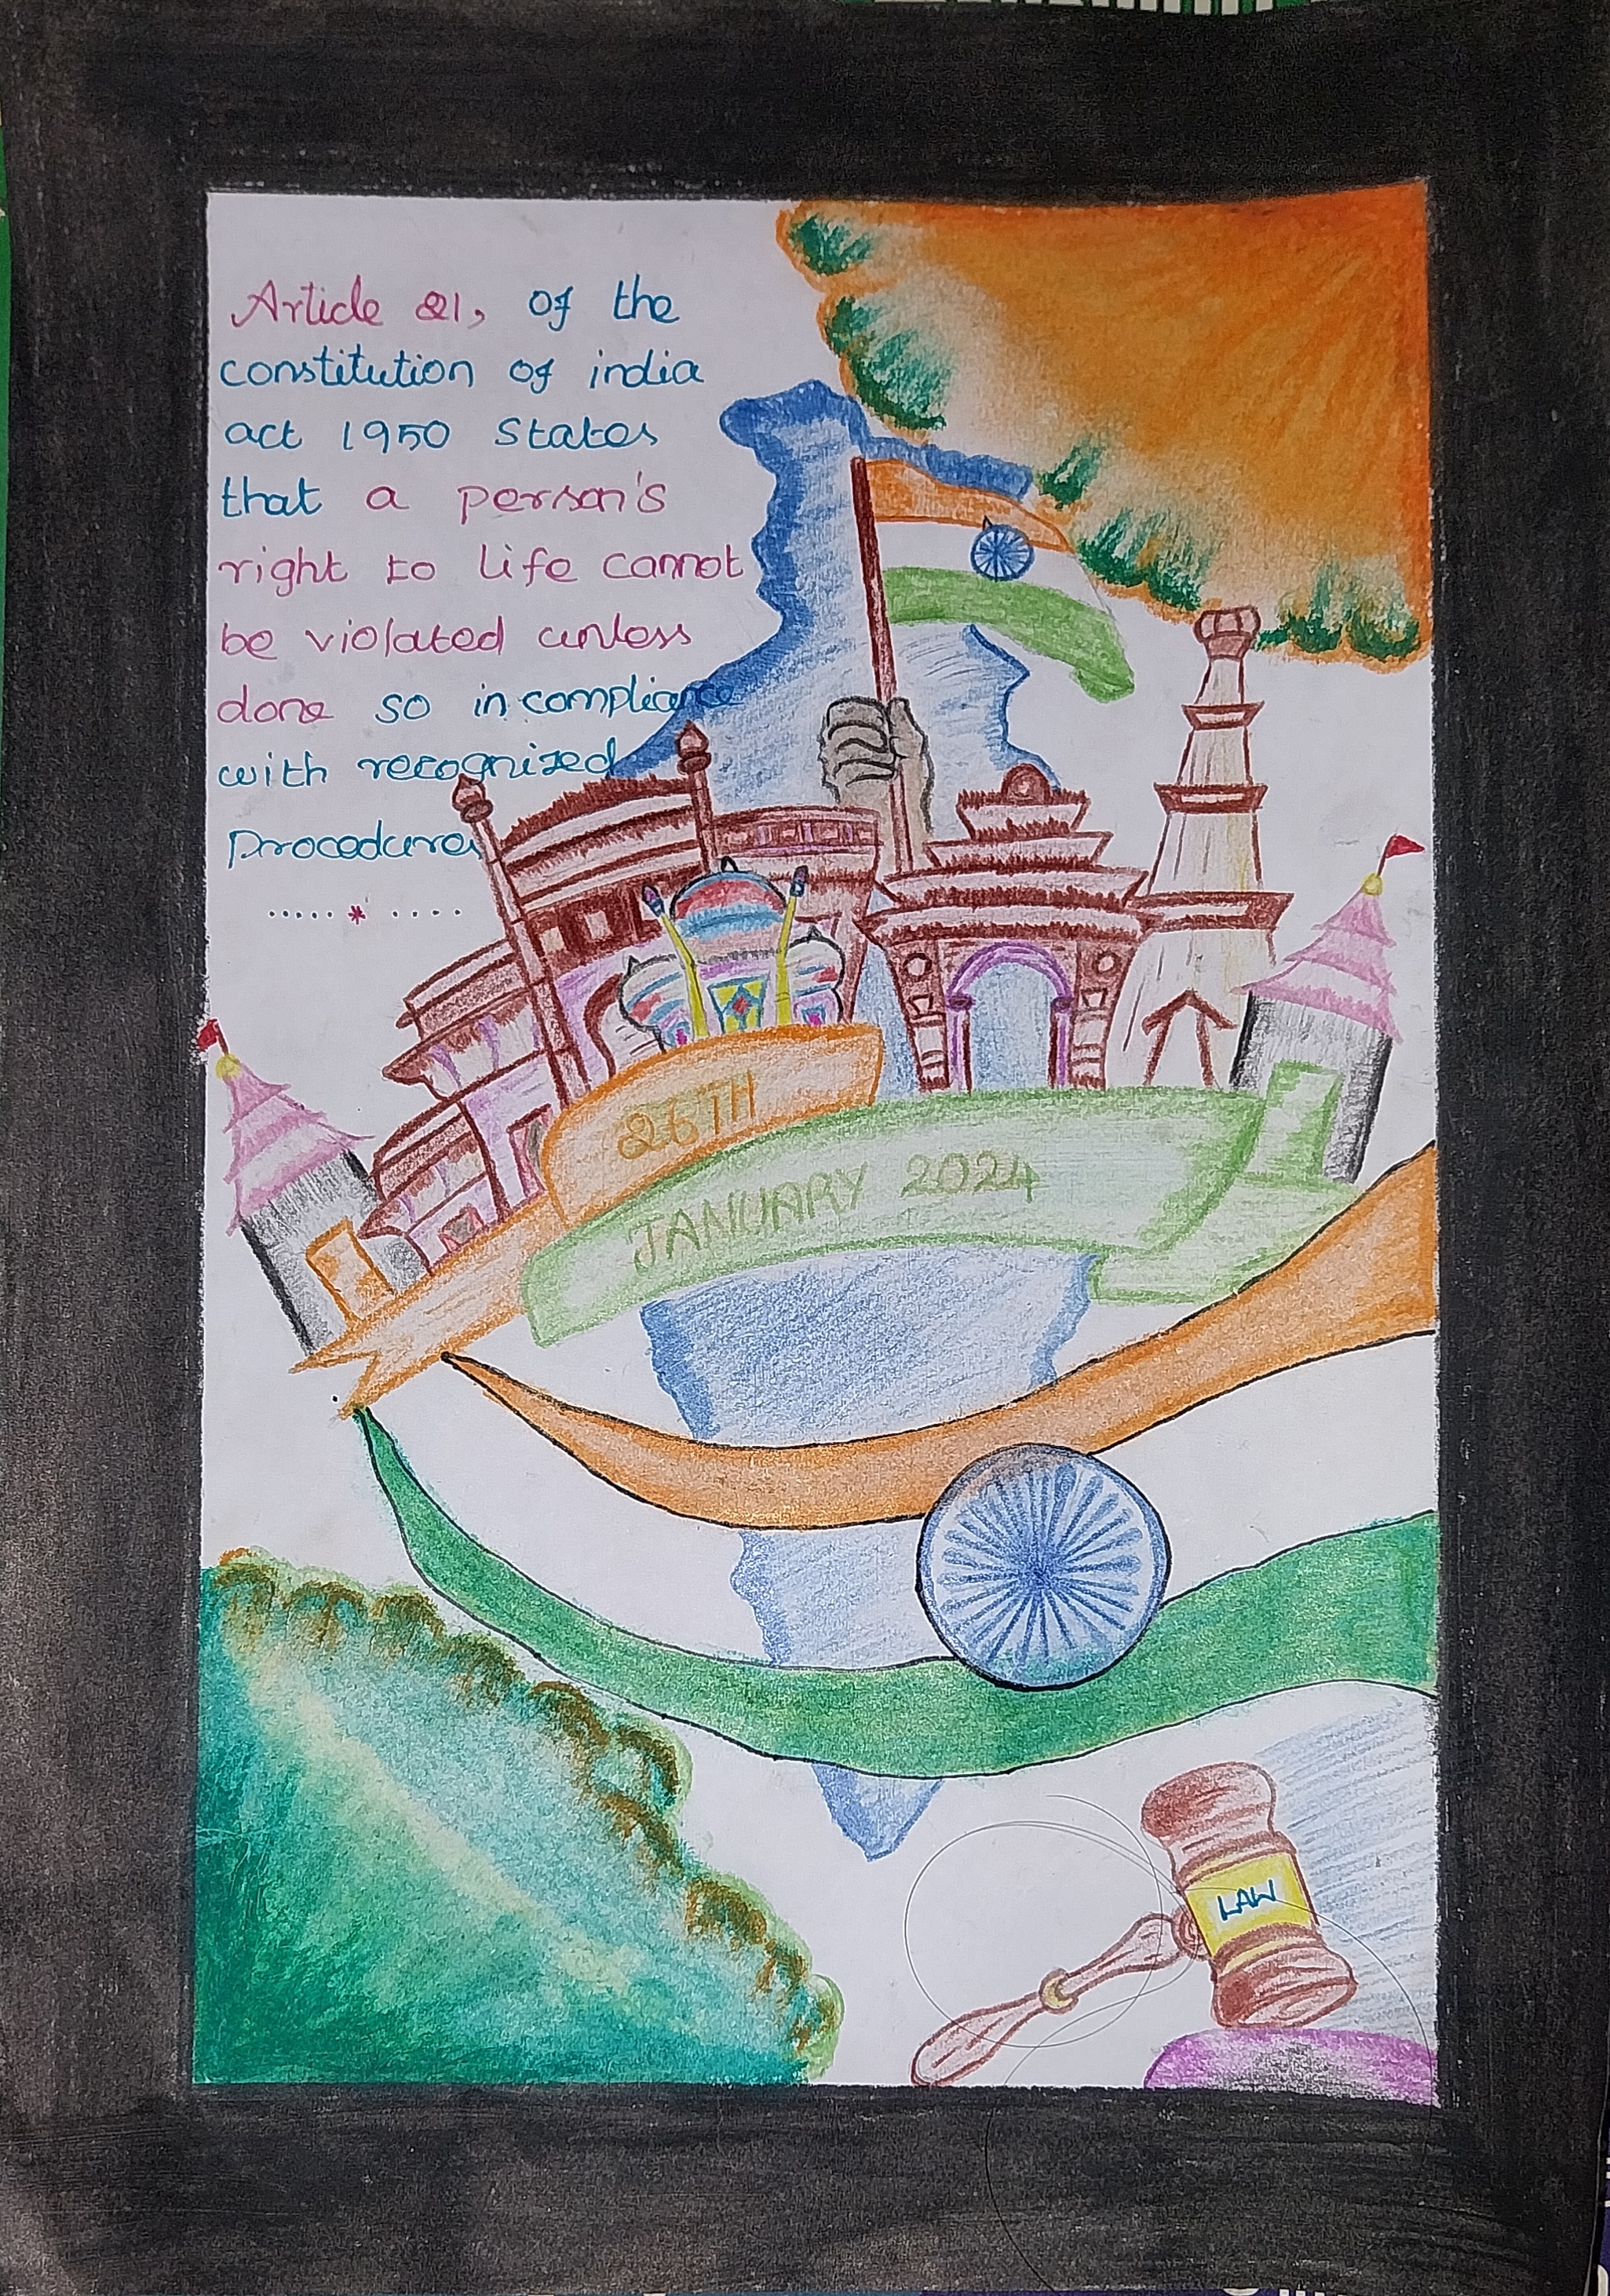 Article 21, of the
constitution of india
act 1950 states
that a person's
right to life cannot
be violated unless
done so in compliance
with recognized
Procedure
..... * ....
26TH
JANUARY 2024
LAW